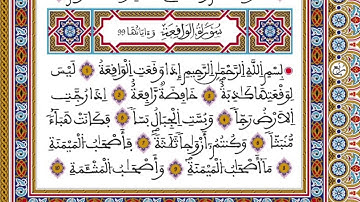 سُورَةُ الْوَاقِعَةِ وَءَايَاتُهَا 99
بِسْمِ اللَّهِ الرَّحْمَٰنِ الرَّحِيمِ إِذَا وَقَعَتِ الْوَاقِعَةُ لَيْسَ
لِوَقْعَتِهَا كَاذِبَةٌ خَافِضَةٌ رَّافِعَةٌ إِذَا رُجَّتِ
الْأَرْضُ رَجًّا وَبُسَّتِ الْجِبَالُ بَسًّا فَكَانَتْ هَبَاءً
مُّنبَثًّا وَكُنتُمْ أَزْوَاجًا ثَلَاثَةً فَأَصْحَابُ الْمَيْمَنَةِ
مَا أَصْحَابُ الْمَيْمَنَةِ وَأَصْحَابُ الْمَشْـَٔمَةِ